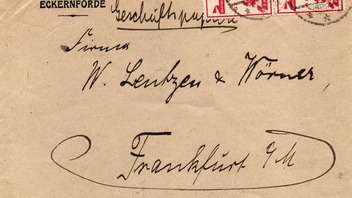 ECKERNFÖRDE
Geschäftspapiere
Firma
W. Lentzen & Wörner
Frankfurt a/M